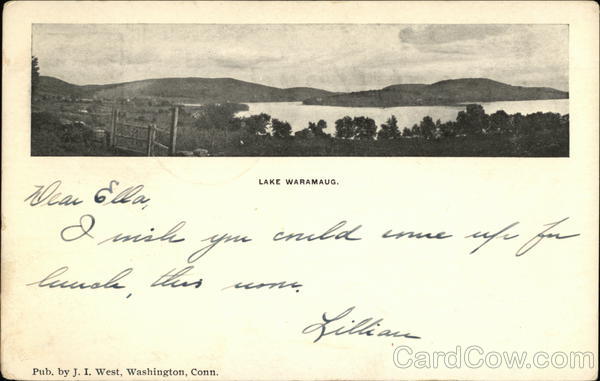 LAKE WARAMAUG.
Dear Ella,
I wish you could come up for
lunch, this noon.
Lillian
Pub. by J. I. West, Washington, Conn.
CardCow.com